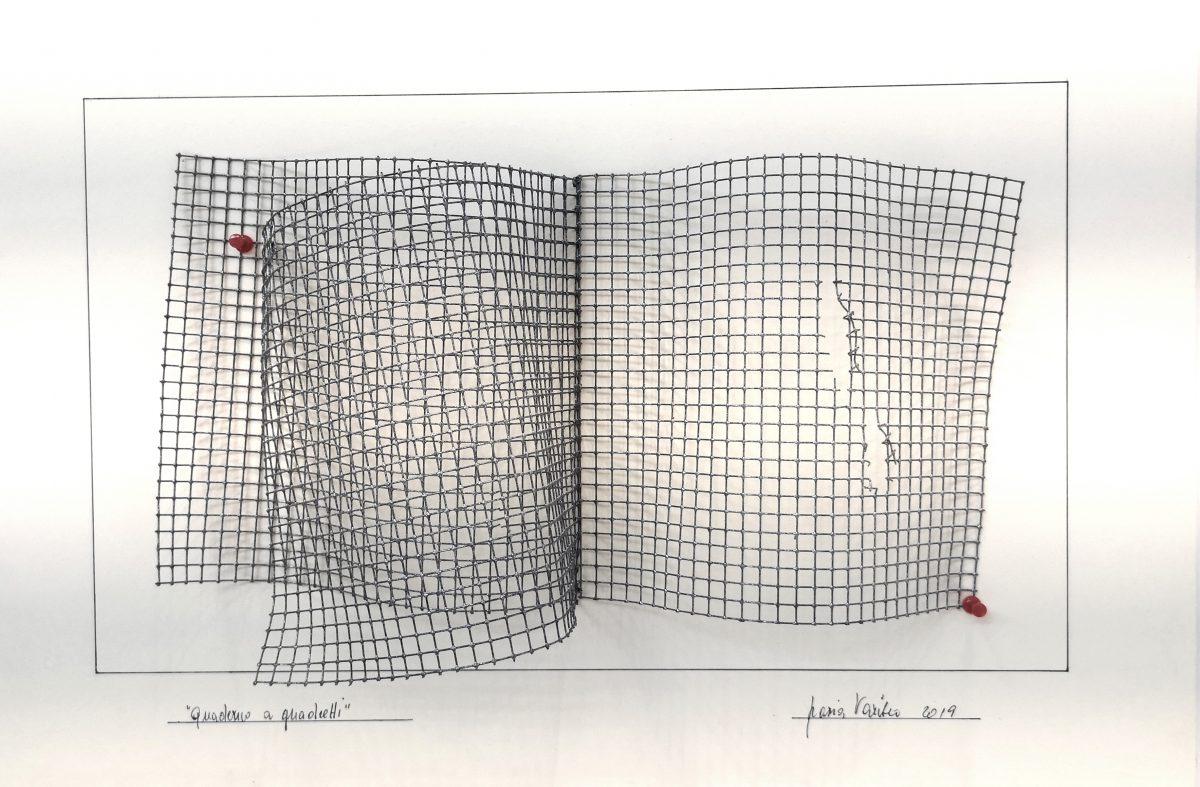 "Quaderno a quadretti"
Grazia Varisco 2019